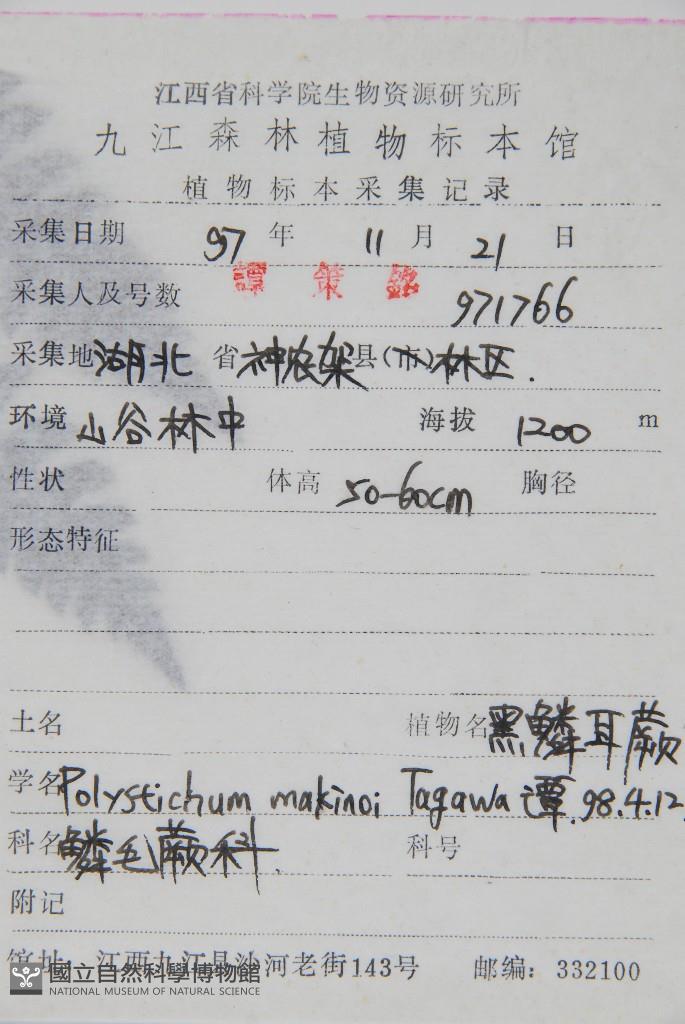 江西省科学院生物资源研究所
九江森林植物标本馆
植物标本采集记录
采集日期 97 年 11 月 21 日
采集人及号数 譚策銘 971766
采集地 湖北 省 神农架 县(市) 林区.
环境 山谷林中 海拔 1200 m
性状 体高 50-60cm 胸径
形态特征
土名 植物名 黑鳞耳蕨
学名 Polystichum makinoi Tagawa 谭.98.4.12.
科名 鳞毛蕨科. 科号
附记
馆址: 江西九江县沙河老街143号 邮编: 332100
國立自然科學博物館
NATIONAL MUSEUM OF NATURAL SCIENCE